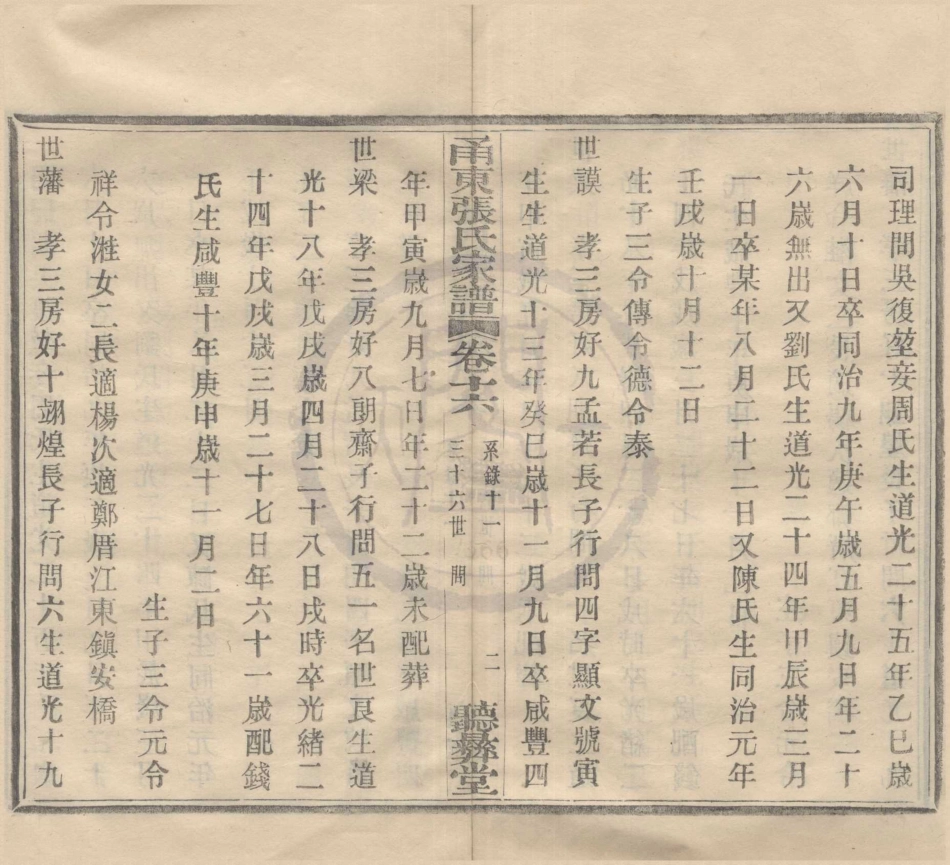 司理問吳復堃妾周氏生道光二十五年乙巳歲
六月十日卒同治九年庚午歲五月九日年二十
六歲無出又劉氏生道光二十四年甲辰歲三月
一日卒某年八月二十二日又陳氏生同治元年
壬戌歲十月十二日
生子三令傳令德令泰
世謨 孝三房好九孟若長子行問四字顯文號寅
生生道光十三年癸巳歲十一月九日卒咸豐四
甬東張氏家譜 卷十六 系錄十一 三十六世 問 二 聽彝堂
年甲寅歲九月七日年二十二歲未配葬
世梁 孝三房好八朗齋子行問五一名世良生道
光十八年戊戌歲四月二十八日戌時卒光緒二
十四年戊戌歲三月二十七日年六十一歲配錢
氏生咸豐十年庚申歲十一月二日
生子三令元令
祥令淮女二長適楊次適鄭厝江東鎮安橋
世藩 孝三房好十翊煌長子行問六生道光十九